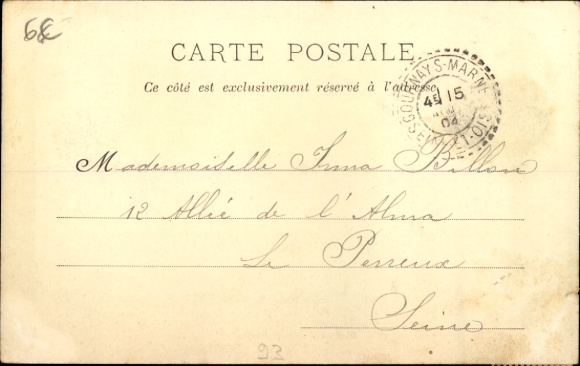 6€
CARTE POSTALE
Ce côté est exclusivement réservé à l'adresse
GOURNAY-S-MARNE
4E 15
04
SEINE-ET-OISE
Mademoiselle Irma Billon
12 Allée de l'Alma
Le Perreux
Seine
93